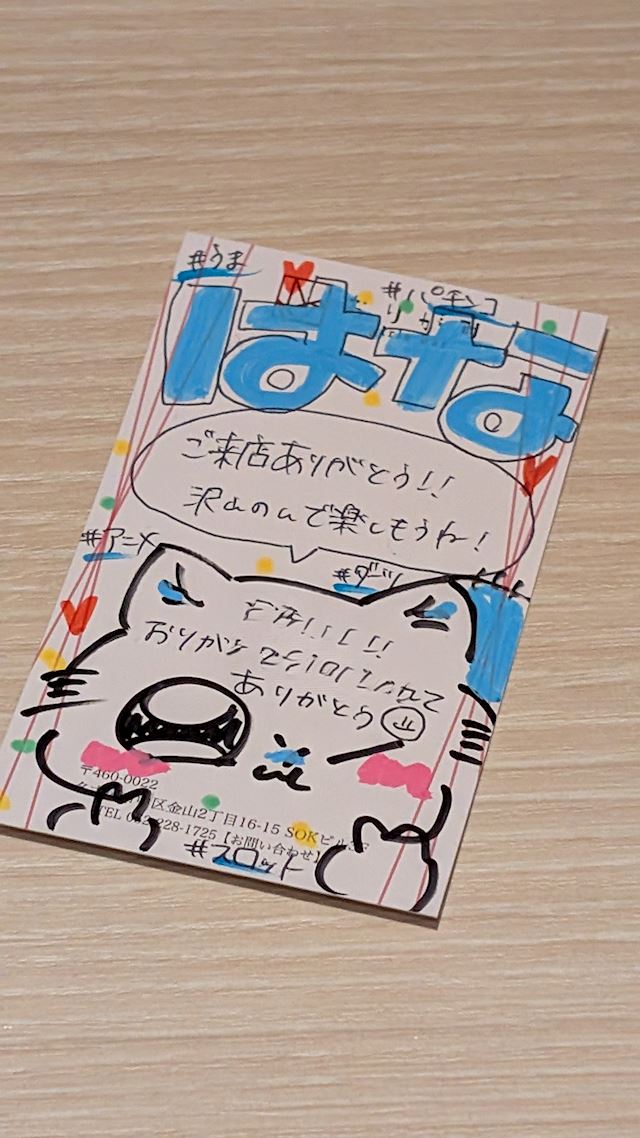 #うま
#パチンコ
はな
ご来店ありがとう!!
沢山のんで楽しもうね!
#アニメ
#ダーツ
ありがとう
〒460-0022
区金山2丁目16-15 SOKビル
TEL 052-228-1725【お問い合わせ】
#スロット